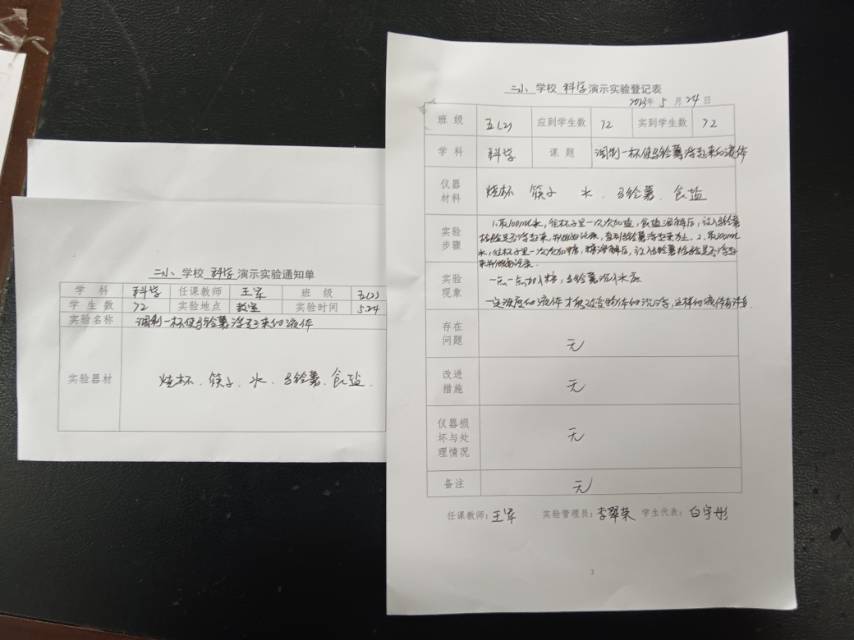 二小 学校 科学 演示实验通知单
学 科 科学 任课教师 王军 班 级 五(2)
学 生 数 72 实验地点 教室 实验时间 5.24
实验名称 调制一杯使马铃薯浮起来的液体
实验器材 烧杯、筷子、水、马铃薯、食盐
二小 学校 科学 演示实验登记表
2023年 5 月 24 日
班 级 五(2) 应到学生数 72 实到学生数 72
学 科 科学 课 题 调制一杯使马铃薯浮起来的液体
仪器
材料
烧杯 筷子 水 马铃薯 食盐
实验
步骤
1.取200ml水,往杯子里一次次加盐,食盐溶解后,让马铃薯
直到马铃薯浮起来为止。2.取200ml
水,往杯子里一次次加糖,糖溶解后,让马铃薯
实验
现象
一点一点加入糖,马铃薯沉入水底
一定浓度的液体才能改变物体的沉浮,这样的液体有许多
存在
问题
无
改进
措施
无
仪器损
坏与处
理情况
无
备注 无
任课教师:王军 实验管理员:李翠荣 学生代表:白宇彤